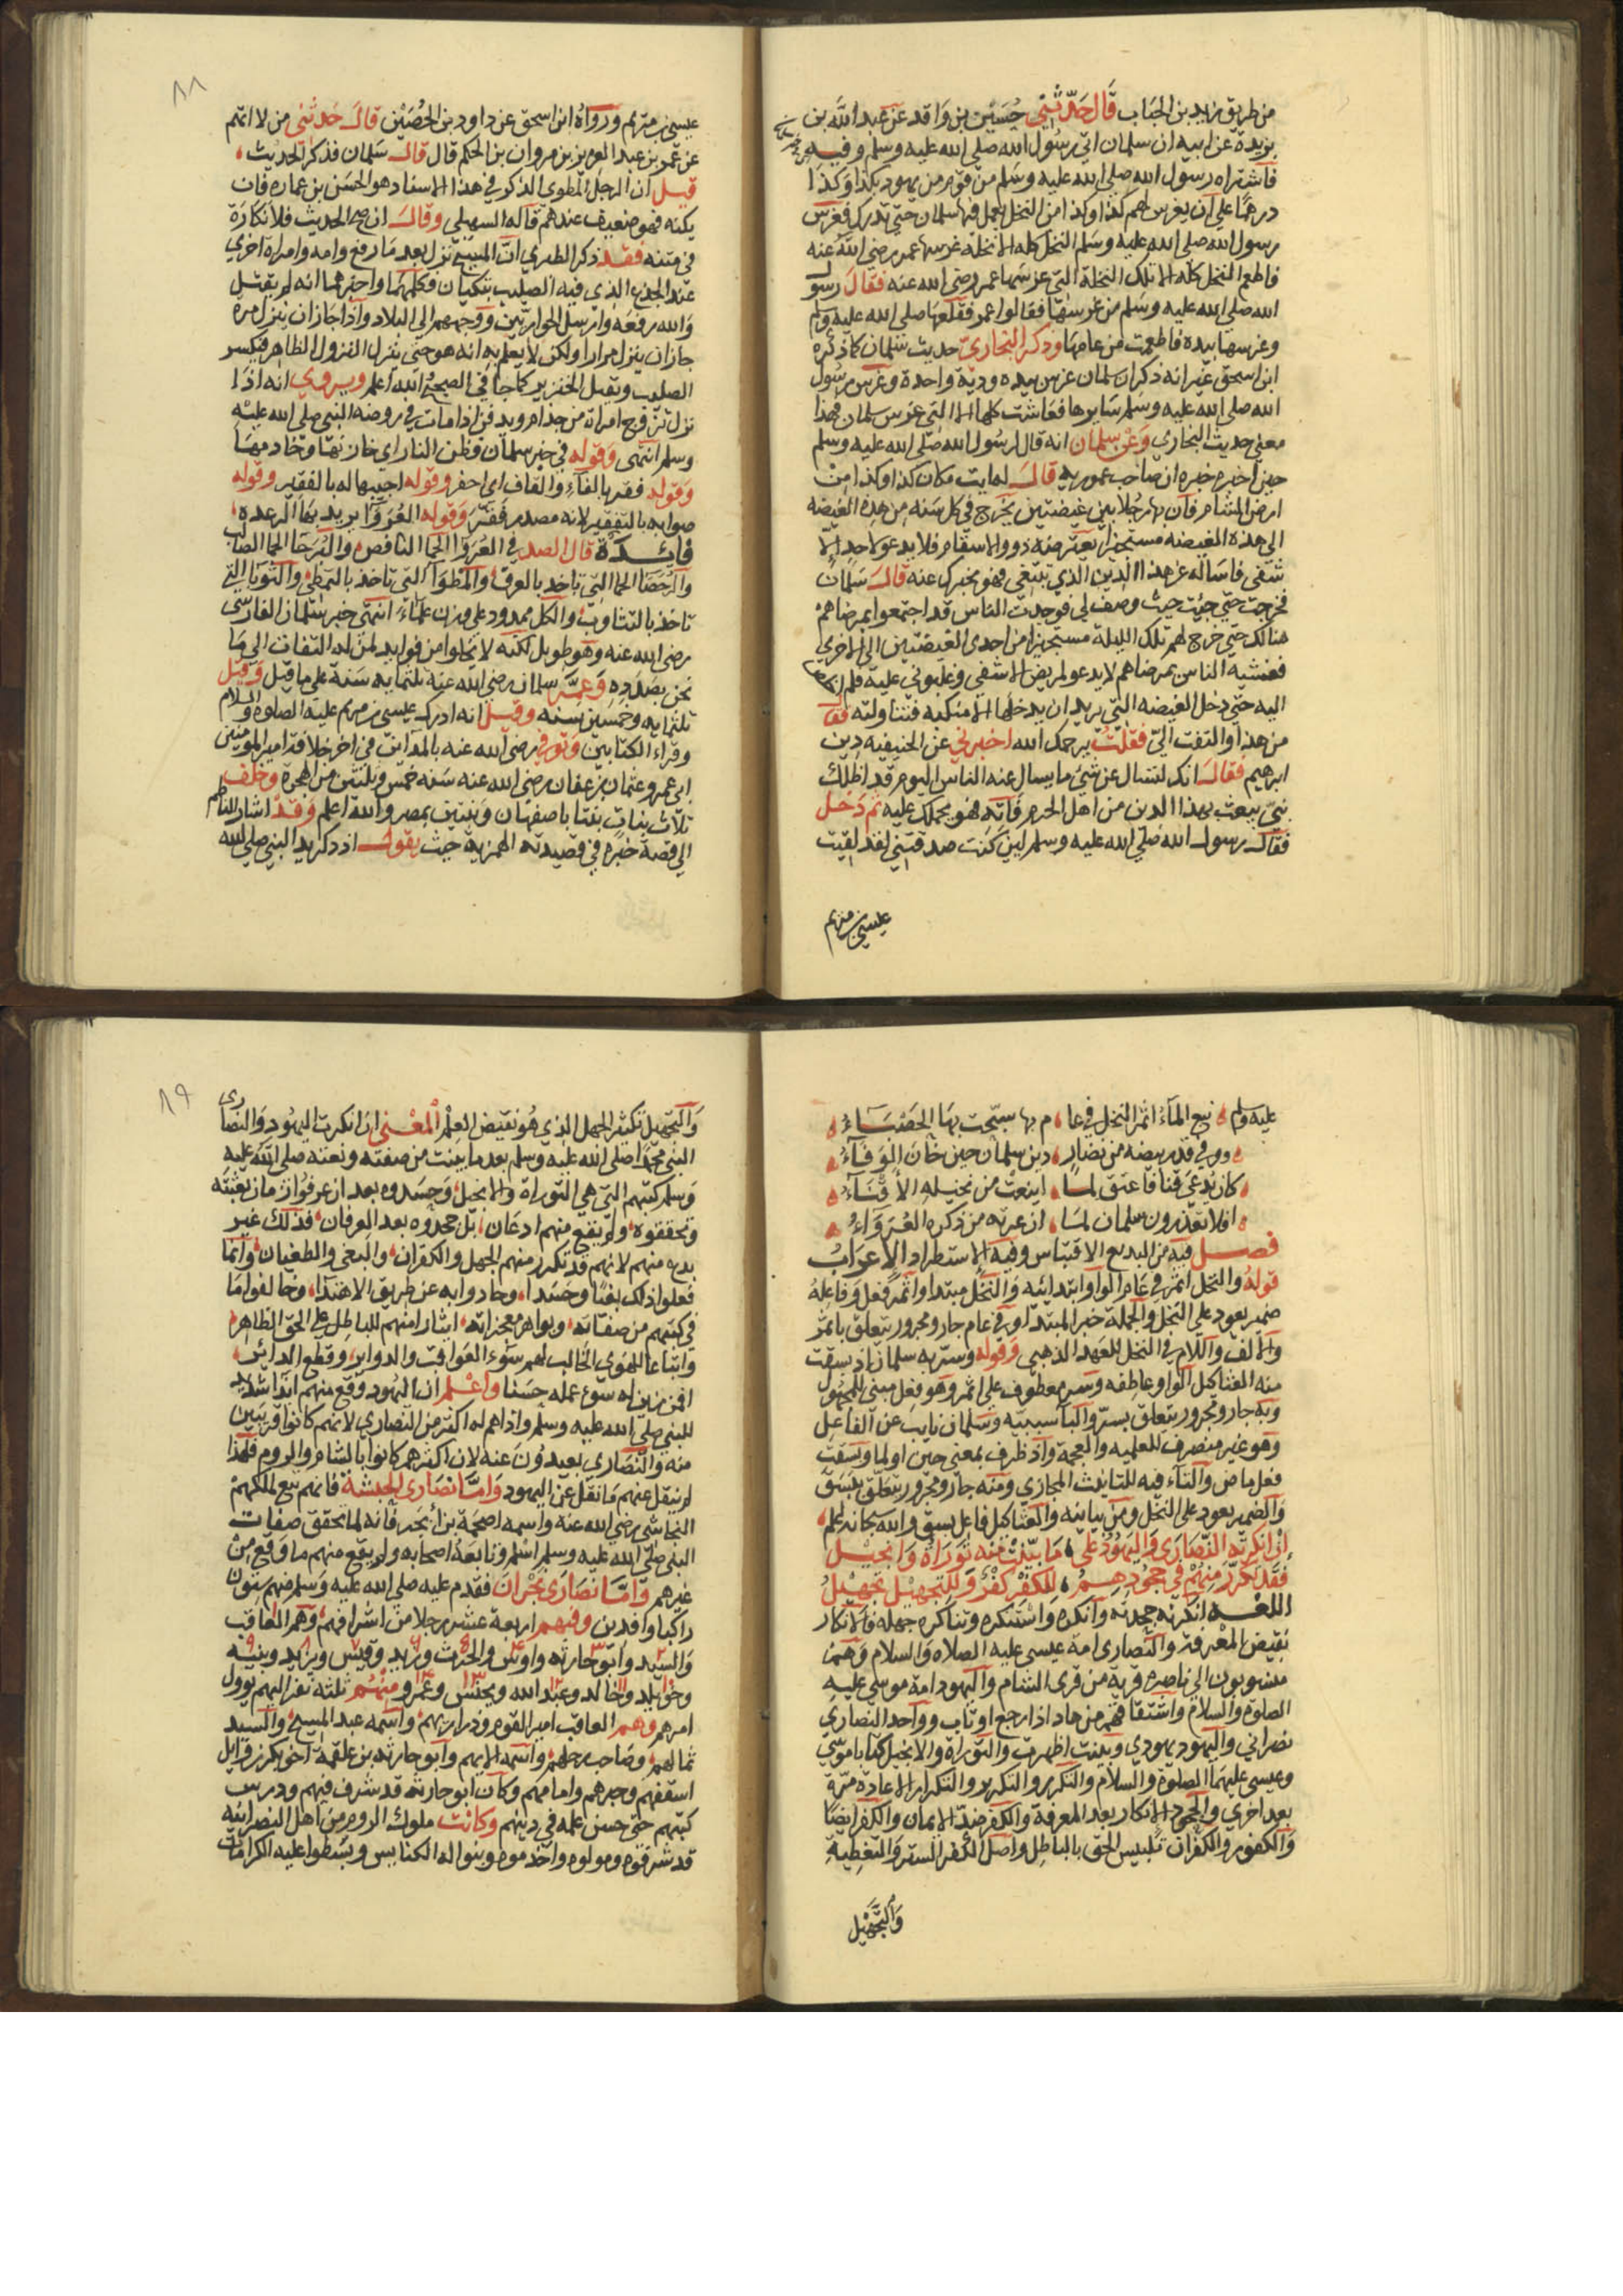 من طريق زيد بن الحباب قال حدثني حسين بن واقد عن عبد الله بن
بريدة عن ابيه ان سلمان اتي رسول الله صلى الله عليه وسلم وفيه
فاشتراه رسول الله صلى الله عليه وسلم من قوم من يهود بكذا وكذا
درهما علي ان يغرس لهم كذا وكذا من النخل يعمل فيها سلمان حتي تدرك فغرس
رسول الله صلى الله عليه وسلم النخل كله الا نخلة غرسها عمر رضي الله عنه
فاطعم النخل كله الا تلك النخلة التي غرسها عمر رضي الله عنه فقال رسول
الله صلى الله عليه وسلم من غرسها فقالوا عمر فقلعها صلى الله عليه وسلم
وغرسها بيده فاطعمت من عامها وذكر البخاري حديث سلمان كما ذكره
ابن اسحق غير انه ذكر ان سلمان غرس بيده ودية واحدة وغرس رسول
الله صلى الله عليه وسلم سايرها فعاشت كلها الا التي غرس سلمان هذا
معني حديث البخاري وعن سلمان انه قال لرسول الله صلى الله عليه وسلم
حين اخبره خبره ان صاحب عموريه قال له ايت مكان كذا وكذا من
ارض الشام فان بها رجلا بين غيضتين يخرج في كل سنه من هذه الغيضه
الي هذه الغيضه مستجيزا يعترضه ذووا الاسقام فلا يدعو لاحد الا
شفي فاساله عن هذا الدين الذي تبتغي فهو يخبرك عنه قال سلمان
فخرجت حتي جيت حيث وصف لي فوجدت الناس قد اجتمعوا بمرضاهم
هنالك حتي خرج لهم تلك الليلة مستجيزا من احدي الغيضتين الي الاخري
فغشيه الناس بمرضاهم لا يدعو لمريض الا شفي وغلبوني عليه فلم اخلص
اليه حتي دخل الغيضه التي يريد ان يدخلها الا منكبه فتناولته فقال
من هذا والتفت الي فقلت يرحمك الله اخبرني عن الحنيفيه دين
ابراهيم فقال انك لتسال عن شيء ما يسال عنه الناس اليوم قد اظلك
نبي يبعث بهذا الدين من اهل الحرم فاته فهو يحملك عليه ثم دخل
فقال رسول الله صلى الله عليه وسلم لين كنت صدقتني لقد لقيت
عيسى بن مريم
٨٨
عيسى بن مريم ورواه ابن اسحق عن داود بن الحصين قال حدثني من لا اتهم
عن عمر بن عبد العزيز بن مروان بن الحكم قال قال سلمان فذكر الحديث
قيل ان الرجل المطوي الذكر في هذا الاسناد هو الحسن بن عماره فان
يكنه فهو ضعيف عندهم قاله السهيلي وقال ان صح الحديث فلا نكارة
في متنه فقد ذكر الطبري ان المسيح نزل بعد ما رفع وامه وامراه اخري
عند الجذع الذي فيه الصليب تبكيان فكلمهما واخبرهما انه لم يقتل
والله رفعه وارسل الحواريين ووجههم الي البلاد واذا جاز ان ينزل مره
جاز ان ينزل مرارا ولكن لا يعلم به انه هو حتي ينزل النزول الظاهر فيكسر
الصليب ويقتل الخنزير كما جا في الصحيح والله اعلم ويروي انه اذا
نزل تزوج امراة من جذام ويدفن اذا مات في روضه النبي صلى الله عليه
وسلم انتهى وقوله في خبر سلمان وقطن النار اي خازنها وخادمها
وقوله فقر بالفاء والقاف اي احفر وقوله احييها له بالفقير وقوله
صوابه بالتفقير لانه مصدر فقر وقوله العروا يريد بها الرعده
فائدة قال الصدر في العروا الحمّا النافض والبرحا الحمّا الصالب
والرحضا الحما التي تاخذ بالعرق والمطوا التي تاخذ بالتمطي والثوبا التي
تاخذ بالتثاوب والكل ممدود علي وزن علماء انتهى خبر سلمان الفارسي
رضي الله عنه وهو طويل لكنه لا يخلوا من فوايد لمن له التفات الي ما
نحن بصدده وعمر سلمان رضي الله عنه ثلثمايه سنة علي ما قيل وقيل
ثلثمايه وخمسين سنه وقيل انه ادرك عيسى بن مريم عليه الصلوة والسلام
وقراء الكتابين وتوفي رضي الله عنه بالمداين في اخر خلافة امير المومنين
ابي عمرو عثمان بن عفان رضي الله عنه سنه خمس وثلثين من الهجرة وخلف
ثلاث بنات بنتا باصفهان وبنتين بمصر والله اعلم وقد اشار الناظم
الي قصة خبره في قصيدته الهمزية حيث يقول اذ ذكر يد النبي صلى الله
عليه وسلم نبع الماء اثمر النخل في عا م بها سبحت بها الحصباء
ووفي قدر بيضه من نضار دين سلمان حين حان الوفاء
كان يدعي قنا فاعتق لما اينعت من نخيله الاقناء
افلا تعذرون سلمان لما ان عرته من ذكره العرواء
فصل فيه من البديع الاقتباس وفيه الاستطراد الاعراب
قوله والنخل اثمر في عام الواو ابتدائيه والنخل مبتدا واثمر فعل وفاعله
ضمير يعود على النخل والجملة خبر المبتدا وفي عام جار ومجرور يتعلق باثمر
والالف واللام في النخل للعهد الذهبي وقوله وسر به سلمان اذ بسقت
منه العثاكيل الواو عاطفه وسر معطوف علي اثمر وهو فعل مبني للمجهول
وبه جار ومجرور يتعلق بسر والبا سببيه وسلمان نايب عن الفاعل
وهو غير منصرف للعلميه والعجمة واذ ظرف بمعني حين او لما وبسقت
فعل ماض والتاء فيه للتانيث المجازي ومنه جار ومجرور يتعلق ببسق
والضمير يعود على النخل ومن بيانيه والعثاكيل فاعل بسق والله سبحانه اعلم
ان انكرته النصارى واليهود على ما بينت منه توراة وانجيل
فقد تكرر منهم في جحودهم للكفر كفر وللتجهيل تجهيل
اللغه انكرته جحدته وانكره واستنكره وتناكره جهله فالانكار
نقيض المعرفة والنصارى امة عيسى عليه الصلاه والسلام وهم
منسوبون الي ناصره قرية من قرى الشام واليهود امة موسي عليه
الصلوة والسلام واشتقاقهم من هاد اذا رجع او تاب وواحد النصارى
نصراني واليهود يهودي وبينت اظهرت والتوراة والانجيل كتابا موسي
وعيسى عليهما الصلوة والسلام والتكرير والتكرار الاعادة مرة
بعد اخري والجحود الانكار بعد المعرفة والكفر ضد الايمان والكفر ايضا
والكفور والكفران تلبيس الحق بالباطل واصل الكفر الستر والتغطية
والتجهيل
٨٩
والتجهيل تكثير الجهل الذي هو نقيض العلم المعنى ان انكرت اليهود والنصارى
النبي محمدا صلى الله عليه وسلم بعد ما بينت من صفته ونعته صلى الله عليه
وسلم كتبهم التي هي التوراة والانجيل وحسدوه بعد ان عرفوا زمان بعثته
وتحققوه ولم يقع منهم اذعان بل جحدوه بعد العرفان فذلك غير
بدع منهم لانهم قد تكرر منهم الجهل والكفران والبغي والطغيان وانما
فعلوا ذلك بغيا وحسدا وحادوا به عن طريق الاهتدا وخالفوا ما
في كتبهم من صفاته وبواهر معجزاته ايثارا منهم للباطل على الحق الظاهر
واتباعا للهوى الجالب لهم سوء العواقب والدواير وقطع الدابر
افمن زين له سوء عمله حسنا واعلم ان اليهود وقع منهم ابدا شديد
للنبي صلى الله عليه وسلم واذاهم له اكثر من النصارى لانهم كانوا قريبين
منه والنصارى بعيدون عنه لان اكثرهم كانوا بالشام والروم فلهذا
لم ينقل عنهم ما نقل عن اليهود واما نصارى الحبشة فانهم تبع لملكهم
النجاشي رضي الله عنه واسمه اصحمة بن ابجر فانه لما تحقق صفات
النبي صلى الله عليه وسلم اسلم وتابعه اصحابه ولم يقع منهم ما وقع من
غيرهم واما نصارى نجران فقدم عليه صلى الله عليه وسلم منهم ستون
راكبا وافدين وفيهم اربعة عشر رجلا من اشرافهم وهم العاقب
والسيد وابو حارثه واوس والحرث وزيد وقيس ويزيد ونبيه
وخويلد وخالد وعبد الله ويحنس وعمرو ومنهم ثلثه نفر اليهم يوول
امرهم وهم العاقب امير القوم وذو رايهم واسمه عبد المسيح والسيد
ثمالهم وصاحب رحلهم واسمه الايهم وابو حارثه بن علقمة اخو بكر بن وايل
اسقفهم وحبرهم وامامهم وكان ابو حارثه قد شرف فيهم ودرس
كتبهم حتى حسن علمه في دينهم وكانت ملوك الروم من اهل النصرانيه
قد شرفوه ومولوه واخدموه وبنوا له الكنايس وبسطوا عليه الكرامات